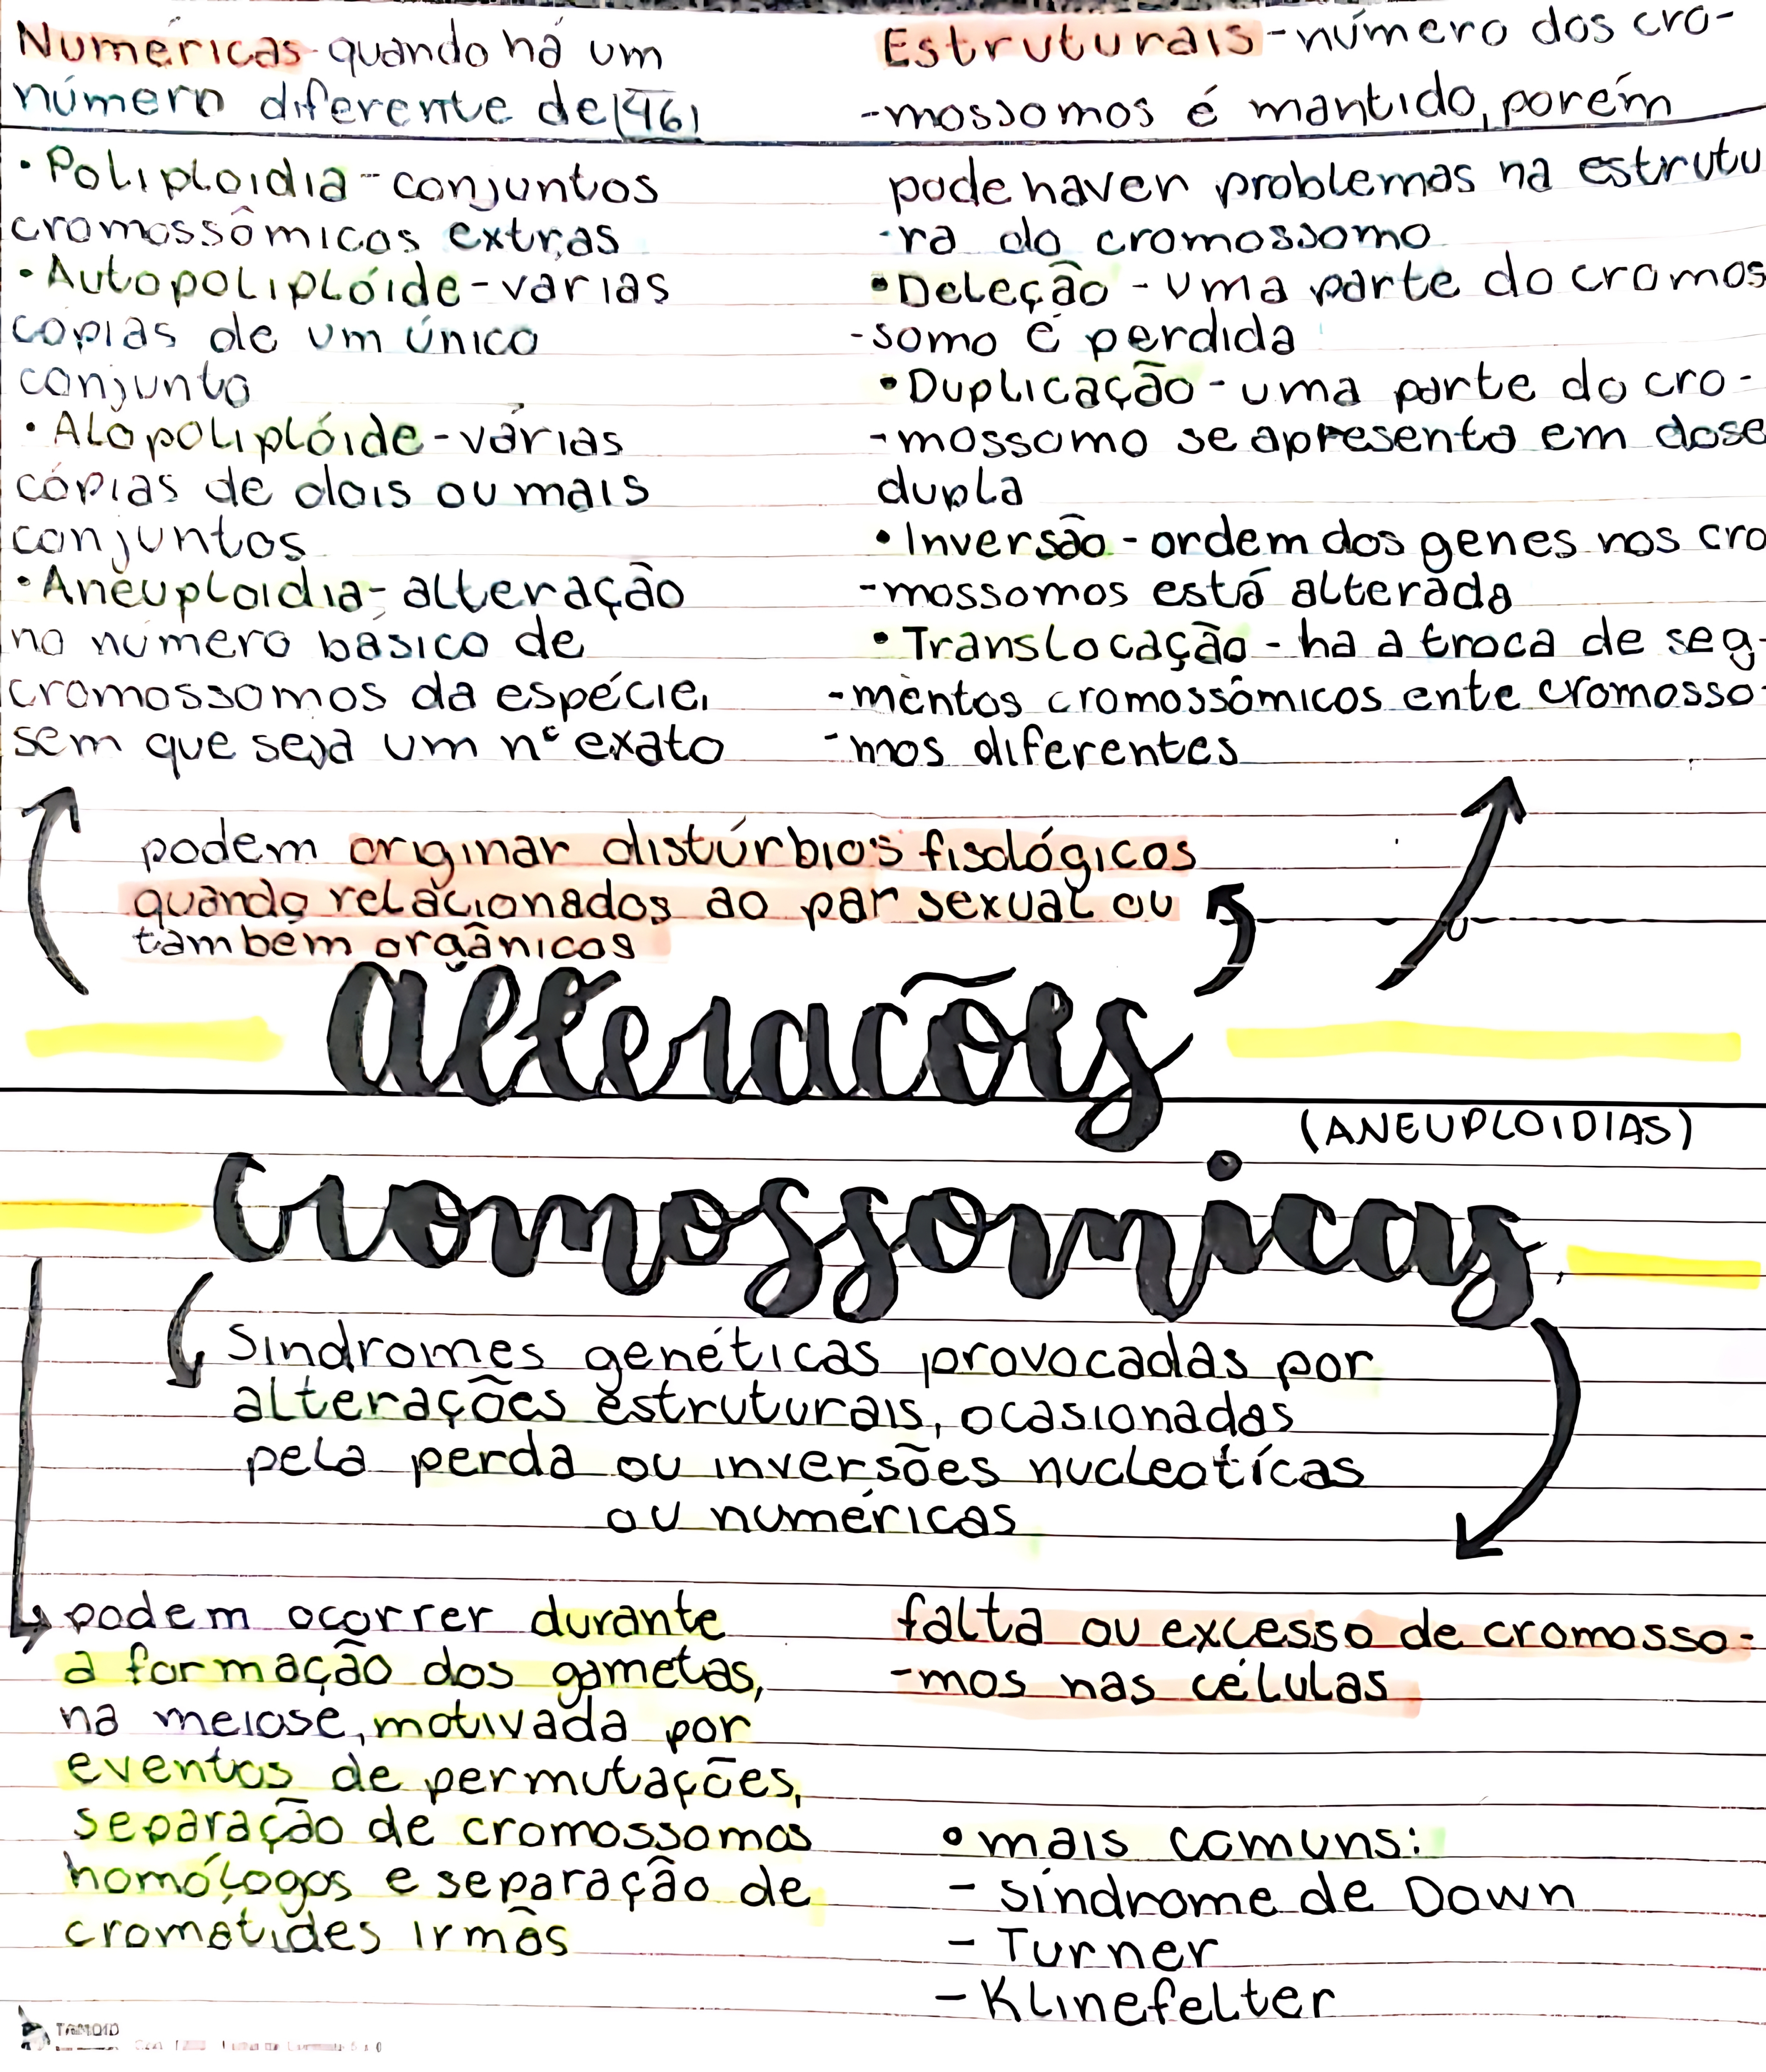 Numéricas - quando há um
número diferente de 46
• Poliploidia - conjuntos
cromossômicos extras
• Autopoliplóide - várias
cópias de um único
conjunto
• Alopoliplóide - várias
cópias de dois ou mais
conjuntos
• Aneuploidia - alteração
no número básico de
cromossomos da espécie,
sem que seja um nº exato
Estruturais - número dos cro-
-mossomos é mantido, porém
pode haver problemas na estrutu
-ra do cromossomo
• Deleção - uma parte do cromos
-somo é perdida
• Duplicação - uma parte do cro-
-mossomo se apresenta em dose
dupla
• Inversão - ordem dos genes nos cro
-mossomos está alterada
• Translocação - ha a troca de seg-
-mentos cromossômicos ente cromosso-
-mos diferentes
podem originar distúrbios fisológicos
quando relacionados ao par sexual ou
também orgânicos
Alterações
(ANEUPLOIDIAS)
Cromossomicas
Sindromes genéticas provocadas por
alterações estruturais, ocasionadas
pela perda ou inversões nucleotícas
ou numéricas
podem ocorrer durante
a formação dos gametas,
na meiose, motivada por
eventos de permutações,
separação de cromossomos
homólogos e separação de
cromátides irmãs
falta ou excesso de cromosso-
-mos nas células
• mais comuns:
- síndrome de Down
- Turner
- Klinefelter